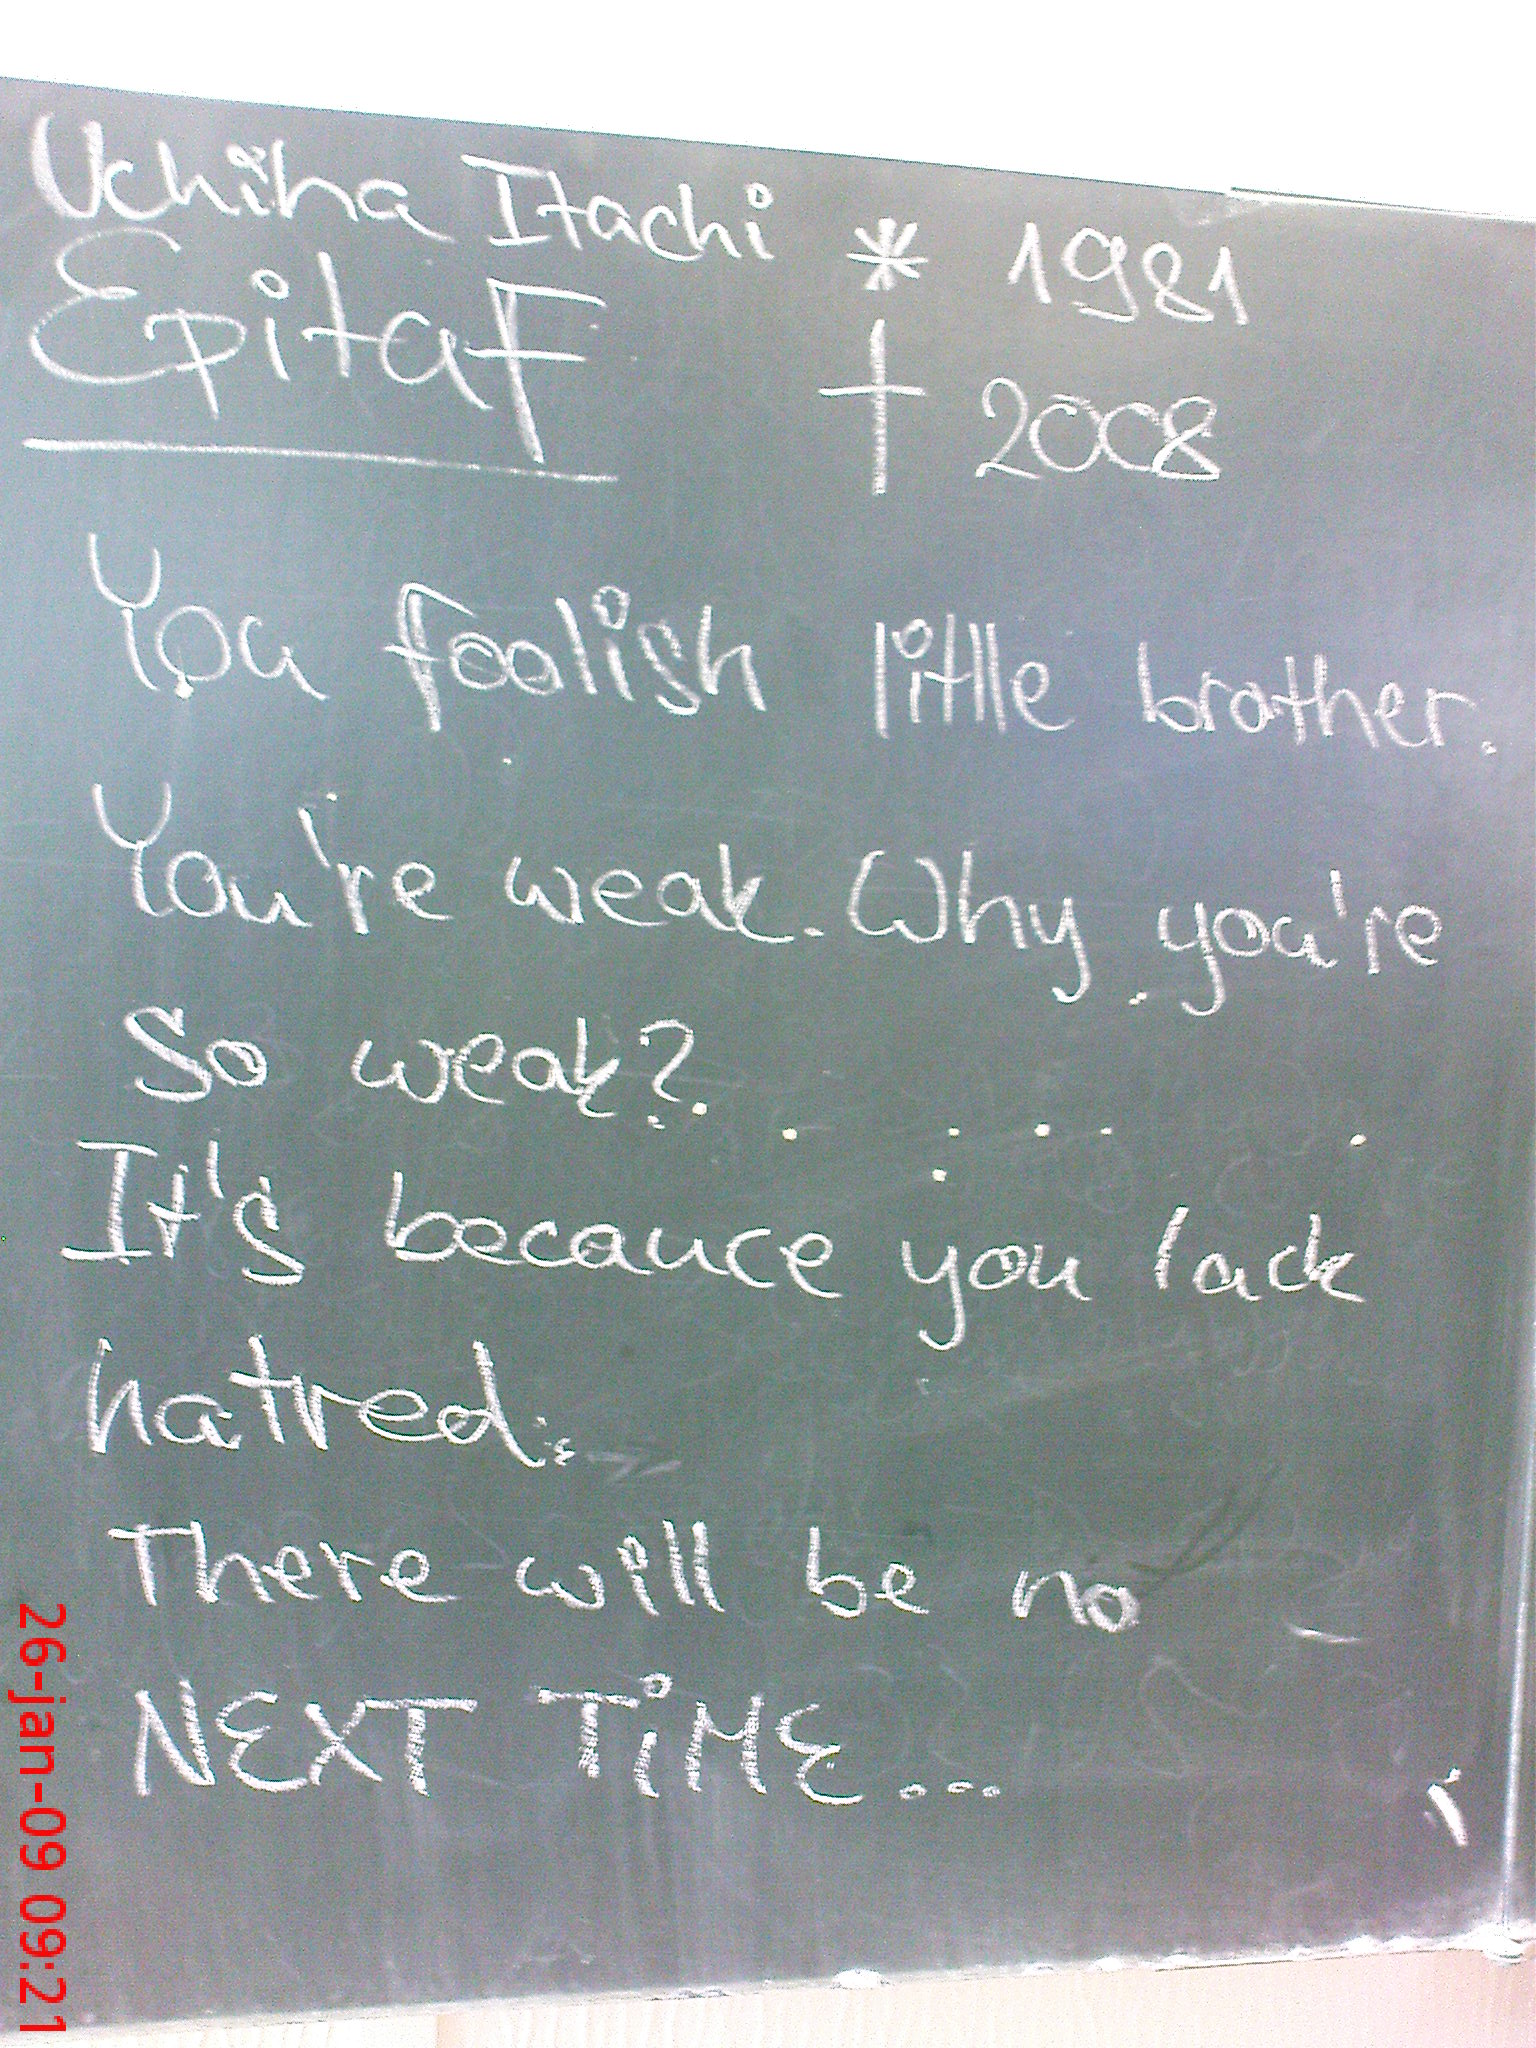 Uchiha Itachi * 1981
Epitaf † 2008
You foolish little brother.
You're weak. Why you're
So weak?
It's becauce you lack
hatred...
There will be no
NEXT TiME...
26-jan-09 09:21